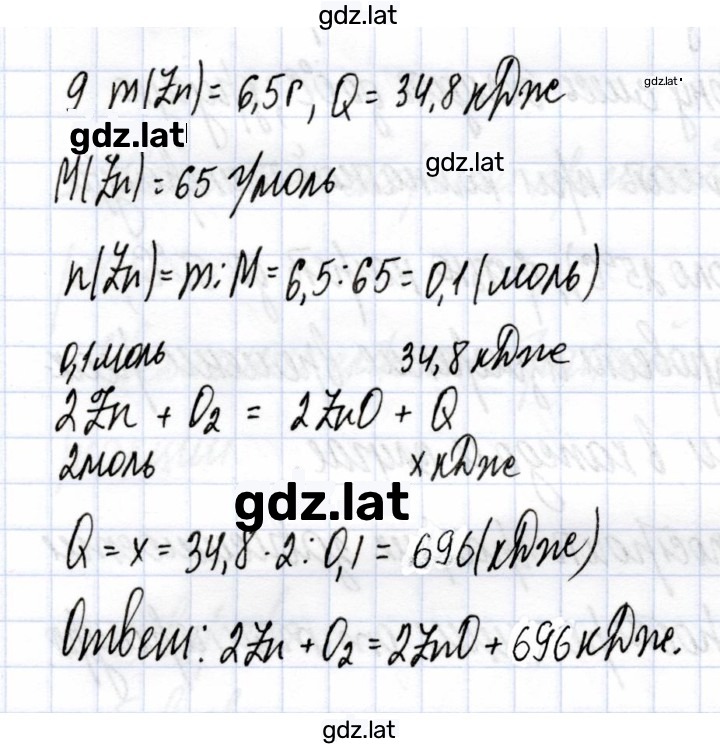 gdz.lat
9 m(Zn) = 6,5г, Q = 34,8 кДж
gdz.lat
gdz.lat
M(Zn) = 65 г/моль
gdz.lat
n(Zn) = m : M = 6,5 : 65 = 0,1 (моль)
0,1 моль 34,8 кДж
2Zn + O₂ = 2ZnO + Q
2 моль x кДж
gdz.lat
Q = x = 34,8 · 2 : 0,1 = 696 (кДж)
Ответ: 2Zn + O₂ = 2ZnO + 696 кДж.
gdz.lat